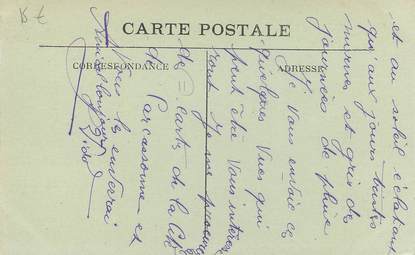 CARTE POSTALE
CORRESPONDANCE
ADRESSE
et au soleil éclatant
qu'aux jours tristes
mornes et gris des
journées de pluie
Je Vous envoie ces
quelques Vues qui
peut être Vous intéres
ront Je me procure
des cartes de la Cité
de Carcassonne et
Vous les enverrai